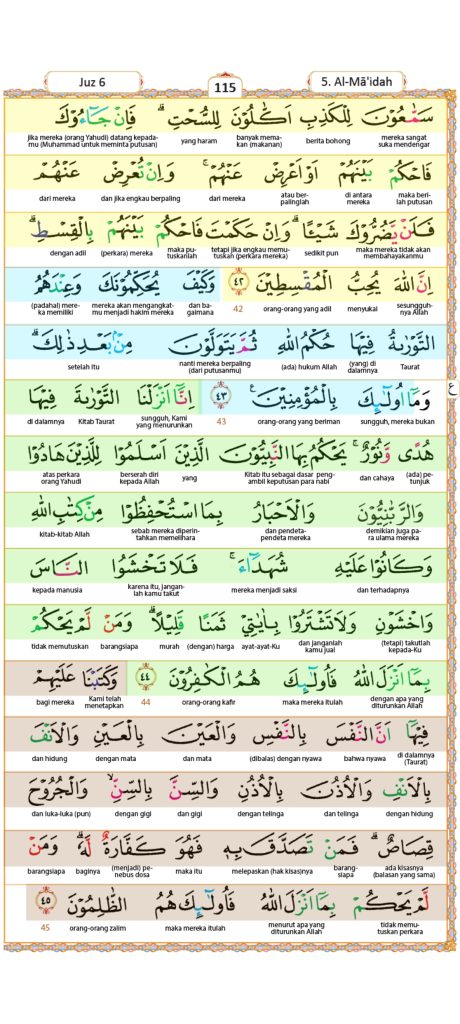 Juz 6
115
5. Al-Mā'idah
سَمّٰعُوْنَ لِلْكَذِبِ اَكّٰلُوْنَ لِلسُّحْتِۗ فَاِنْ جَاۤءُوْكَ
mereka sangat suka mendengar berita bohong banyak memakan (makanan) yang haram jika mereka (orang Yahudi) datang kepadamu (Muhammad untuk meminta putusan)
فَاحْكُمْ بَيْنَهُمْ اَوْ اَعْرِضْ عَنْهُمْۚ وَاِنْ تُعْرِضْ عَنْهُمْ
maka berilah putusan di antara mereka atau berpalinglah dari mereka dan jika engkau berpaling dari mereka
فَلَنْ يَّضُرُّوْكَ شَيْـًٔاۗ وَاِنْ حَكَمْتَ فَاحْكُمْ بَيْنَهُمْ بِالْقِسْطِۗ
maka mereka tidak akan membahayakanmu sedikit pun tetapi jika engkau memutuskan (perkara mereka) maka putuskanlah (perkara) mereka dengan adil
اِنَّ اللّٰهَ يُحِبُّ الْمُقْسِطِيْنَ ٤٢ وَكَيْفَ يُحَكِّمُوْنَكَ وَعِنْدَهُمُ
sesungguhnya Allah menyukai orang-orang yang adil 42 dan bagaimana mereka akan mengangkatmu menjadi hakim mereka (padahal) mereka memiliki
التَّوْرٰىةُ فِيْهَا حُكْمُ اللّٰهِ ثُمَّ يَتَوَلَّوْنَ مِنْۢ بَعْدِ ذٰلِكَۗ
Taurat (yang) di dalamnya (ada) hukum Allah nanti mereka berpaling (dari putusanmu) setelah itu
وَمَآ اُولٰۤىِٕكَ بِالْمُؤْمِنِيْنَ ࣖ ٤٣ اِنَّآ اَنْزَلْنَا التَّوْرٰىةَ فِيْهَا
ع
sungguh, mereka bukan orang-orang yang beriman 43 sungguh, Kami yang menurunkan Kitab Taurat di dalamnya
هُدًى وَّنُوْرٌۚ يَحْكُمُ بِهَا النَّبِيُّوْنَ الَّذِيْنَ اَسْلَمُوْا لِلَّذِيْنَ هَادُوْا
(ada) petunjuk dan cahaya Kitab itu sebagai dasar pengambil keputusan para nabi yang berserah diri kepada Allah atas perkara orang Yahudi
وَالرَّبّٰنِيُّوْنَ وَالْاَحْبَارُ بِمَا اسْتُحْفِظُوْا مِنْ كِتٰبِ اللّٰهِ
demikian juga para ulama mereka dan pendeta-pendeta mereka sebab mereka diperintahkan memelihara kitab-kitab Allah
وَكَانُوْا عَلَيْهِ شُهَدَاۤءَۚ فَلَا تَخْشَوُا النَّاسَ
dan terhadapnya mereka menjadi saksi karena itu, janganlah kamu takut kepada manusia
وَاخْشَوْنِ وَلَا تَشْتَرُوْا بِاٰيٰتِيْ ثَمَنًا قَلِيْلًاۗ وَمَنْ لَّمْ يَحْكُمْ
(tetapi) takutlah kepada-Ku dan janganlah kamu jual ayat-ayat-Ku (dengan) harga murah barangsiapa tidak memutuskan
بِمَآ اَنْزَلَ اللّٰهُ فَاُولٰۤىِٕكَ هُمُ الْكٰفِرُوْنَ ٤٤ وَكَتَبْنَا عَلَيْهِمْ
dengan apa yang diturunkan Allah maka mereka itulah orang-orang kafir 44 Kami telah menetapkan bagi mereka
فِيْهَآ اَنَّ النَّفْسَ بِالنَّفْسِ وَالْعَيْنَ بِالْعَيْنِ وَالْاَنْفَ
di dalamnya (Taurat) bahwa nyawa (dibalas) dengan nyawa dan mata dengan mata dan hidung
بِالْاَنْفِ وَالْاُذُنَ بِالْاُذُنِ وَالسِّنَّ بِالسِّنِّۙ وَالْجُرُوْحَ
dengan hidung dan telinga dengan telinga dan gigi dengan gigi dan luka-luka (pun)
قِصَاصٌۗ فَمَنْ تَصَدَّقَ بِهٖ فَهُوَ كَفَّارَةٌ لَّهٗۗ وَمَنْ
ada kisasnya (balasan yang sama) barangsiapa melepaskan (hak kisas)nya maka itu (menjadi) penebus dosa baginya barangsiapa
لَّمْ يَحْكُمْ بِمَآ اَنْزَلَ اللّٰهُ فَاُولٰۤىِٕكَ هُمُ الظّٰلِمُوْنَ ٤٥
tidak memutuskan perkara menurut apa yang diturunkan Allah maka mereka itulah orang-orang zalim 45